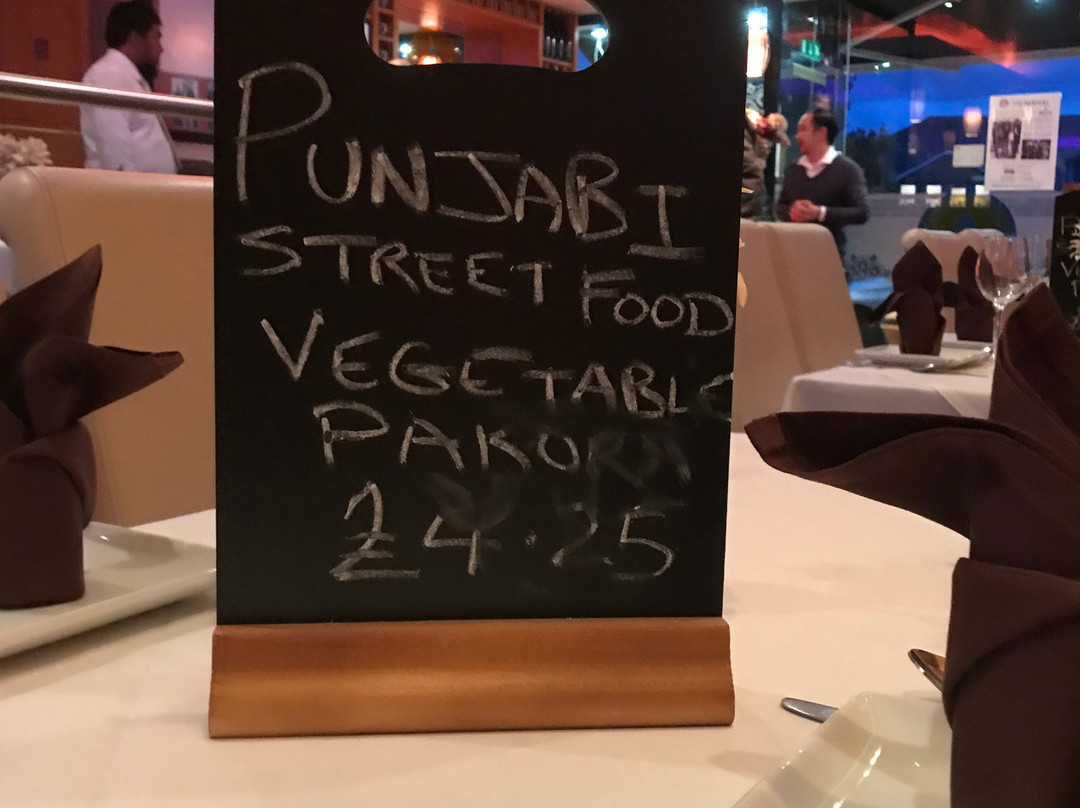 PUNJABI
STREET FOOD
VEGETABLE
PAKORA
£4.25